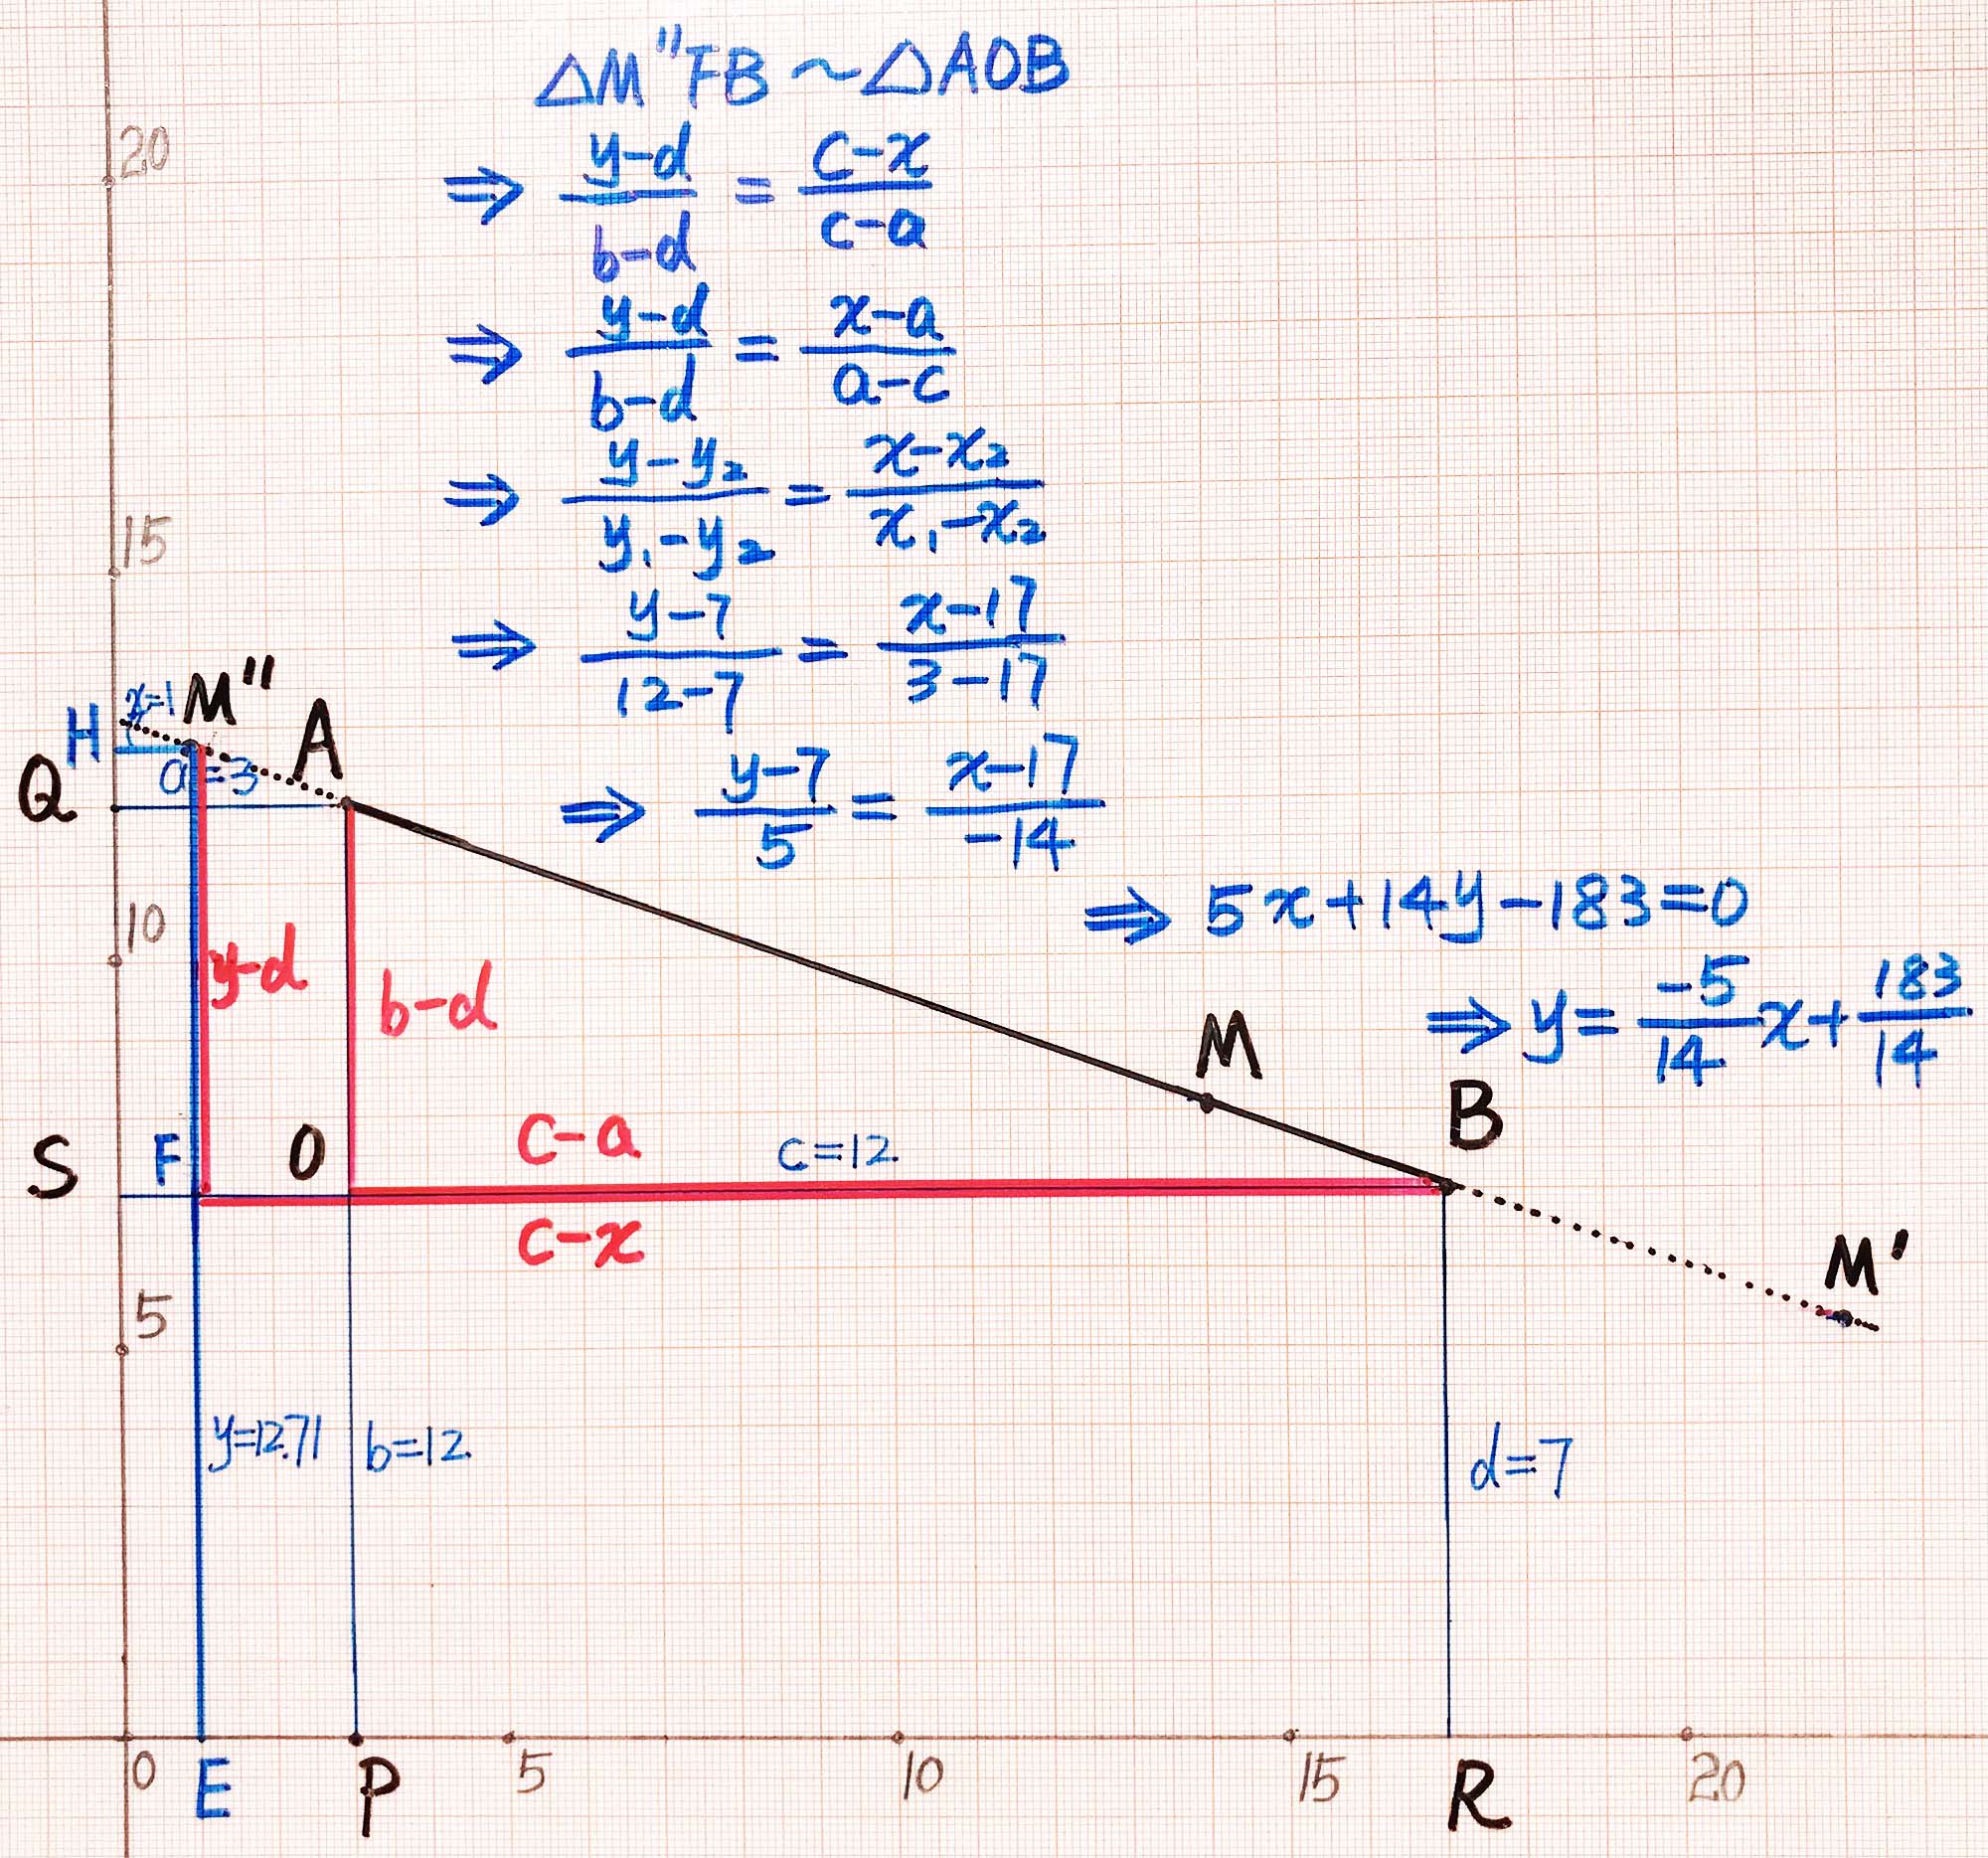 △M"FB ~ △AOB
⇒ (y-d)/(b-d) = (c-x)/(c-a)
⇒ (y-d)/(b-d) = (x-a)/(a-c)
⇒ (y-y₂)/(y₁-y₂) = (x-x₂)/(x₁-x₂)
⇒ (y-7)/(12-7) = (x-17)/(3-17)
⇒ (y-7)/5 = (x-17)/-14
⇒ 5x+14y-183=0
⇒ y = -5/14 x + 183/14
20
15
x=1 M"
H A
Q a=3
10
y-d b-d
M
B
S F O c-a c=12
c-x
M'
5
y=12.71 b=12 d=7
0 E P 5 10 15 R 20